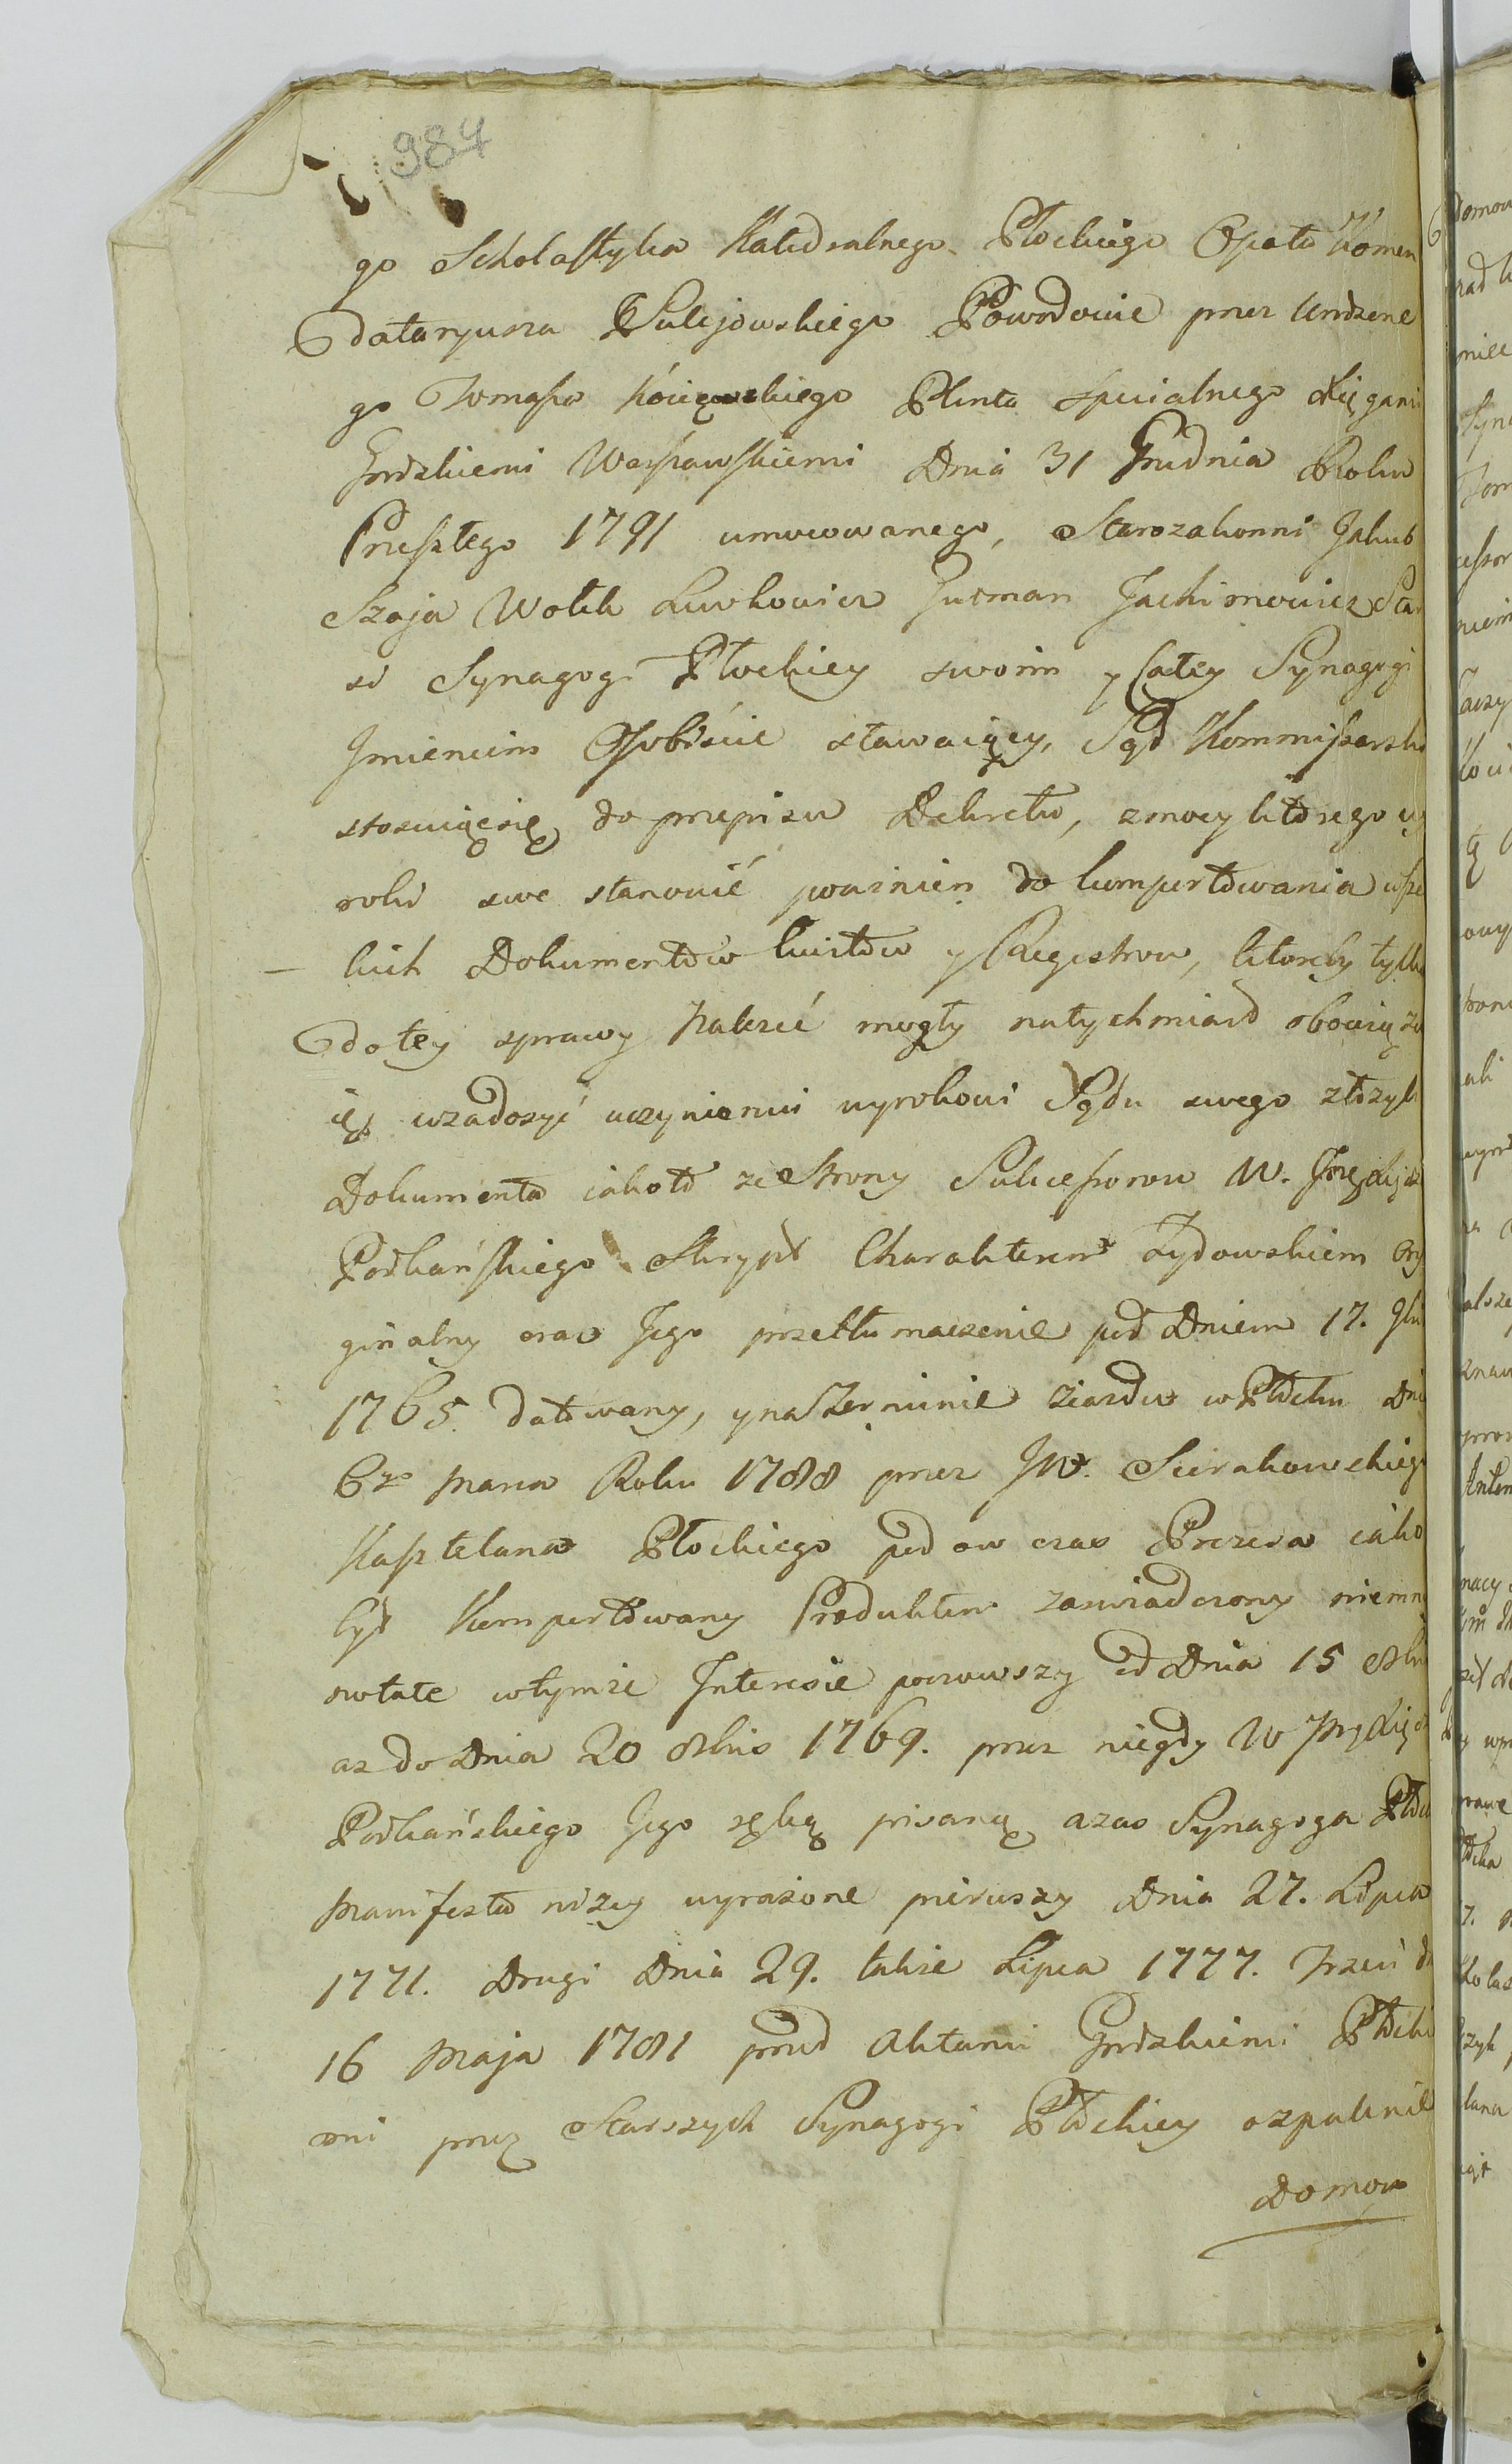 984
go Scholastyka Katedralnego Płockiego Opata Komen
dataryusza Sulejowskiego Powodowie przez Urodzone
go Tomasza Plnta specialnego Xięgami
Grodzkiemi Warszawskiemi Dnia 31 Grudnia Roku
Przeszłego 1791 umocowanego, Starozakonni Jakub
Szaja Wołek Lewkowicz Jachimowicz Star
si Synagogi Płockiey swoim y całey Synagogi
Jmieniem Osobiście stawaiący, Sąd Kommissarski
stosuiącsię do przepisu Dekretu, zmocy którego wy
roki swe stanowić powinien do komportowania wsze
lkich Dokumentów kwitów y Regestrow, któreby tylko
do tey sprawy należeć mogły natychmiast obowiąza
ie wzadosyć uczynieniu wyrokowi Sądu swego złożyli
Dokumenta iakoto ze Strony Sukcessorow W.
Podkańskiego Skrypt Charakterem Żydowskiem ory
ginalny oraz Jego przetłumaczenie pod Dniem 17.
1765. datowany, y na Terminie ziazdu w Płocku Dnia
6go Marca Roku 1788 przez JW. Sierakowskiego
Kasztelana Płockiego pod ow czas Prezesa iako
był Komportowany Produktem zaswiadczony niemniey
notate wtymze Jnteresie począwszy od Dnia 15 8bris
az do Dnia 20 8bris 1769. przez niegdy W
Podkańskiego Jego ręką pisaną a zas Synagoga Płocka
Manifesta niżey wyrażone pierwszy Dnia 27. Lipca
1771. Drugi Dnia 29. także Lipca 1777. Trzeci D
16 Maja 1781 przed Aktami Grodzkiemi Płockie
mi przez Starszych Synagogi Płockiey o spalenie
Domow